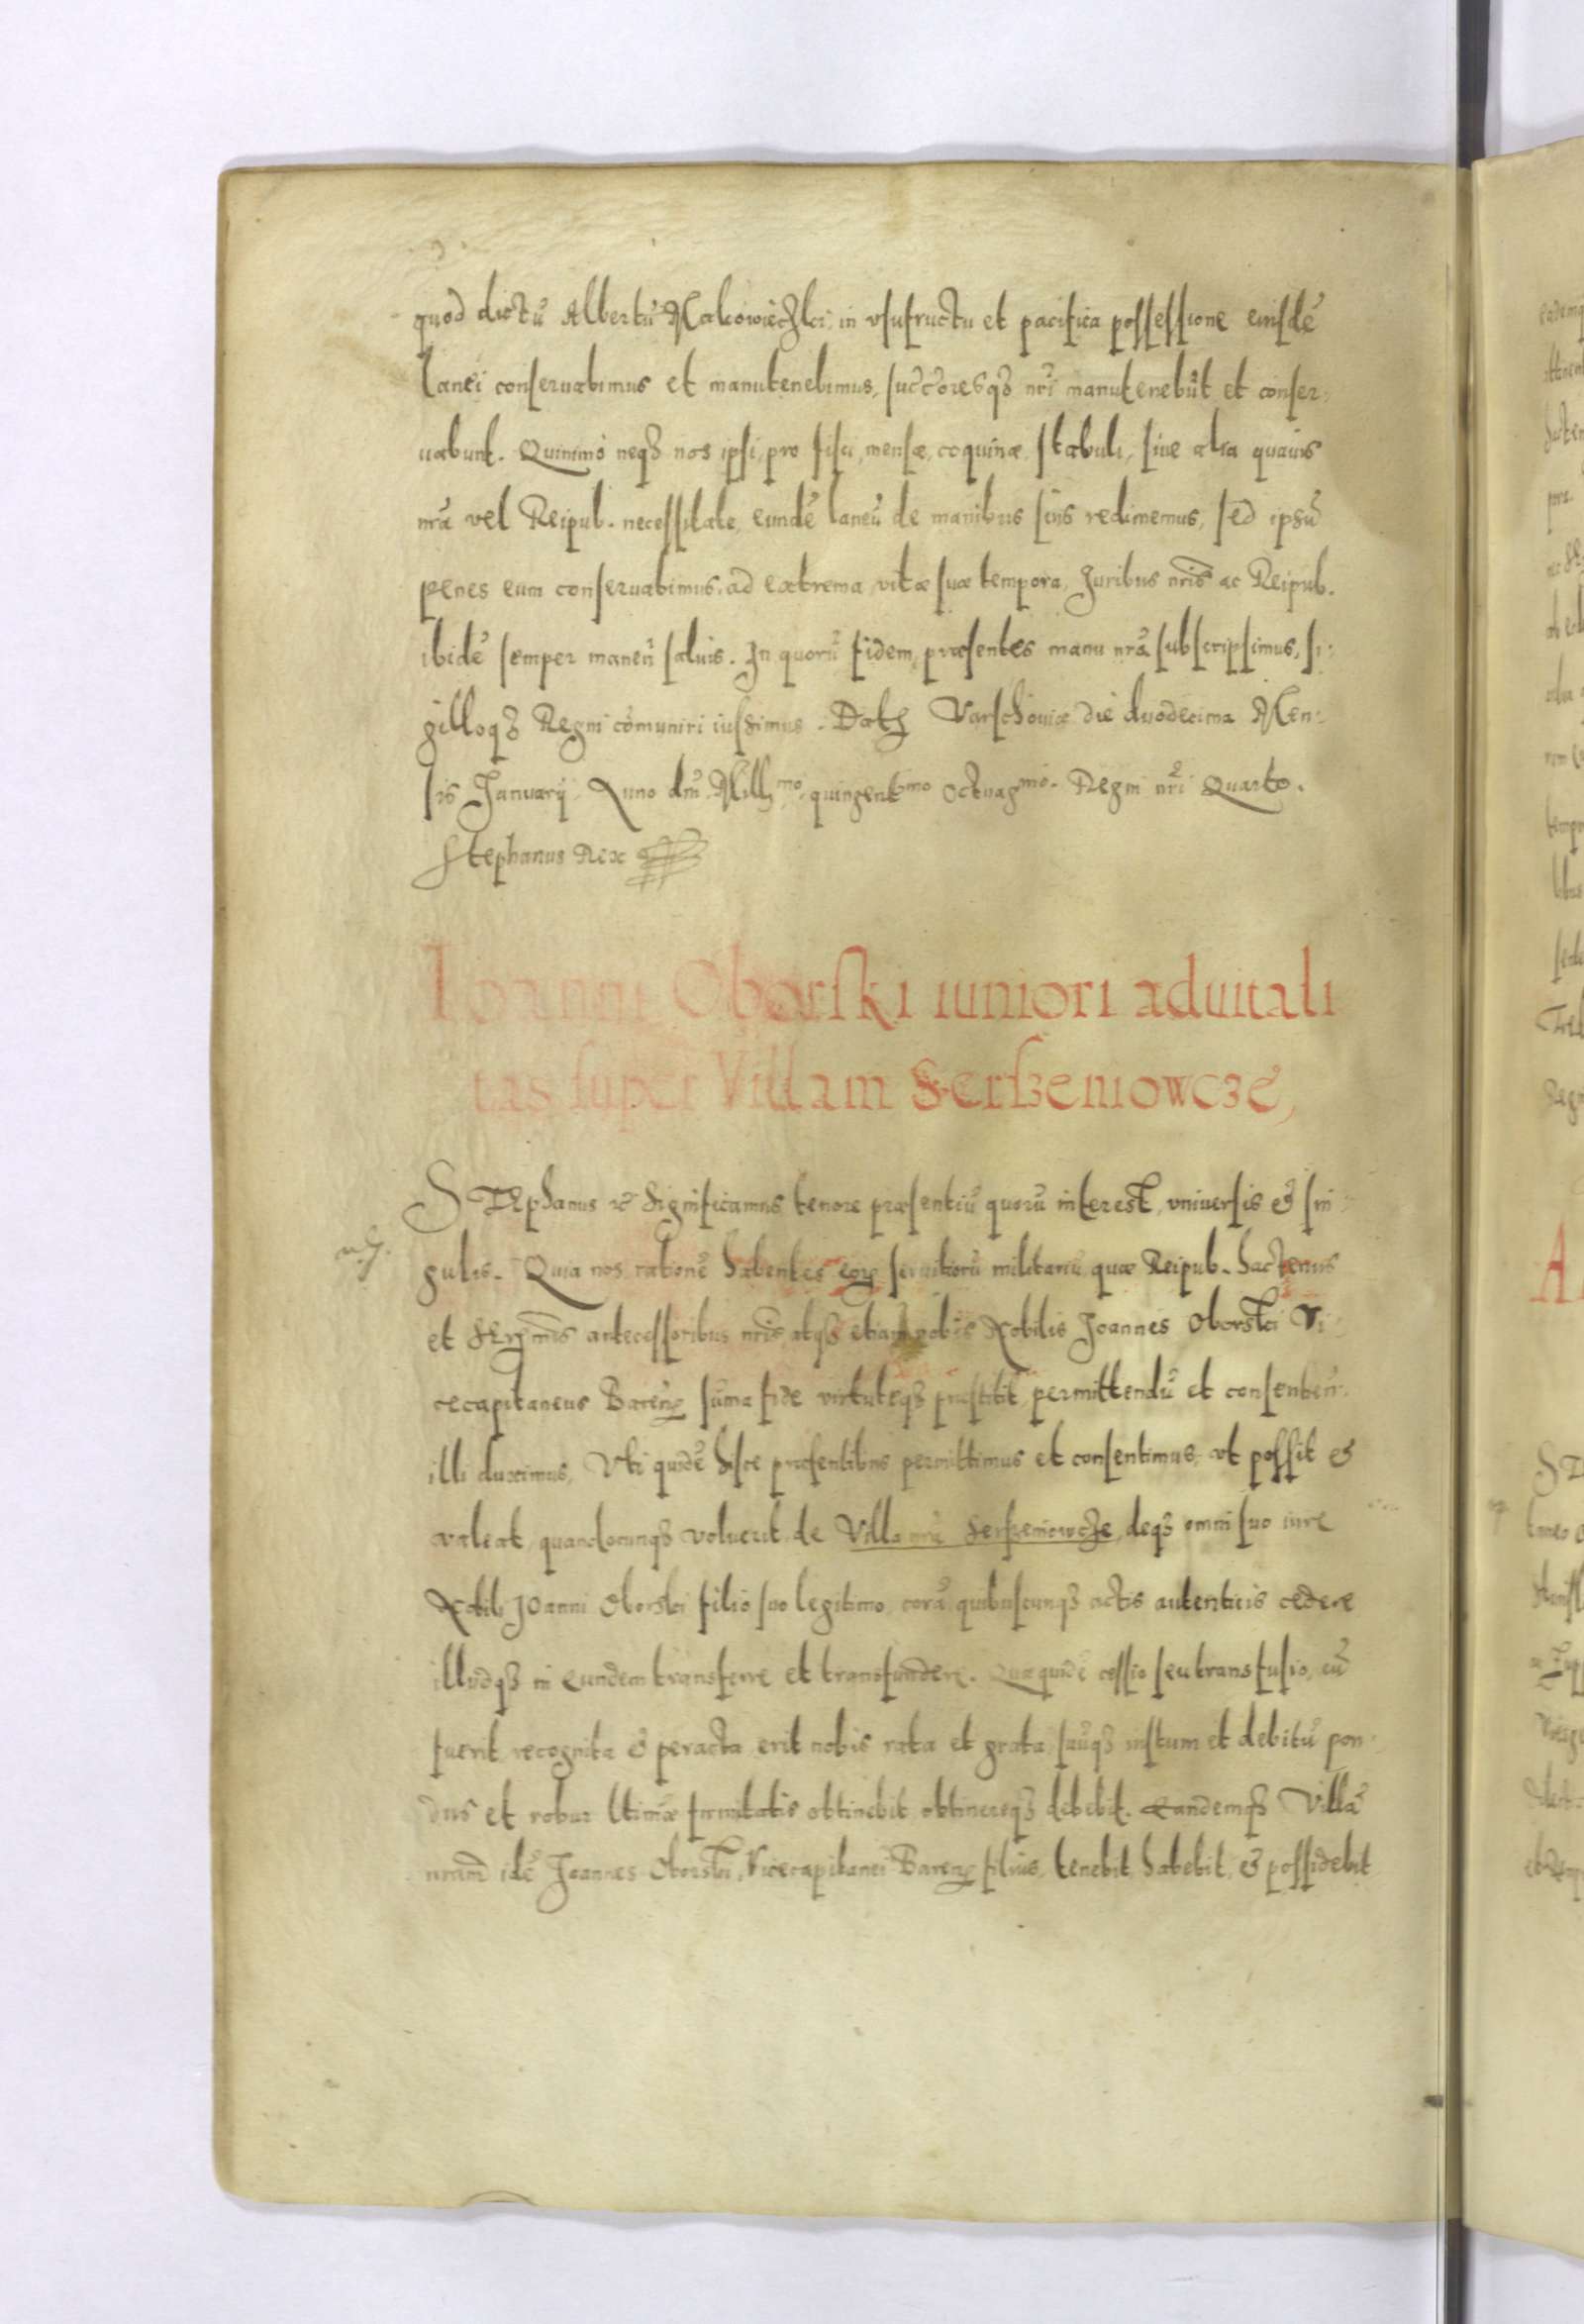 quod dictū Albertū Makowieczki, in vsufructu et pacifica possessione eiusdē
lanei conseruabimus et manutenebimus, succōresq₃ nrī manutenebūt et conser:
uabunt. Quinimò neq₃ nos ipsi, pro fisci, mensæ, coquinæ, stabuli, siue alia quauis
nrā vel Reipub. necessitate, eundē laneū de manibus eius redimemus, sed ipsū
penes eum conseruabimus, ad extrema vitæ suæ tempora, Juribus nrīs ac Reipub.
ibidē semper manen̄ saluis. In quorū fidem, præsentes manu nrā subscripsimus, si:
gilloq₃ Regni cōmuniri iussimus. Datꝫ Varschouiæ die duodecima Men:
sis Januarij. Anno dnī Millꝫmo quingentmo Octuagmo. Regni nrī Quarto.
Stephanus Rex
Ioanni Oborski iuniori aduitali
tas super Villam Serszeniowcze,
STEphanus rc̄ Significamus tenore præsentiū quorū interest, vniuersis & sin:
gulis. Quia nos rationē habentes eoꝝ seruitiorū militariū quæ Reipub. hactenus
et Serꝫmis antecessoribus nrīs atq₃ etiam nobis Nobilis Joannes Oborski Vi:
cecapitaneus Baren̄ sūma fide virtuteq₃ præstitit, permittendū et consentien̄
illi duximus, Vti quidē hisce præsentibus permittimus et consentimus, vt possit &
valeat, quandocunq₃ voluerit, de Villa nrā Serszeniowcze, deq₃ omni suo iure
Nobili Joanni Oborski filio suo legitimo, corā quibuscunq₃ actis autenticis cedere
illudq₃ in eundem transferre et transfundere. Quæ quidē cessio seu transfusio, cū
fuerit recognita & peracta erit nobis rata et grata, suūq₃ iustum et debitū pon:
dus et robur ltimæ firmitatis obtinebit, obtinereq₃ debebit. Eandemq₃ Villā
nrām idē Joannes Oborski, Vicecapitanei Baren̄ filius, tenebit, habebit, & possidebit